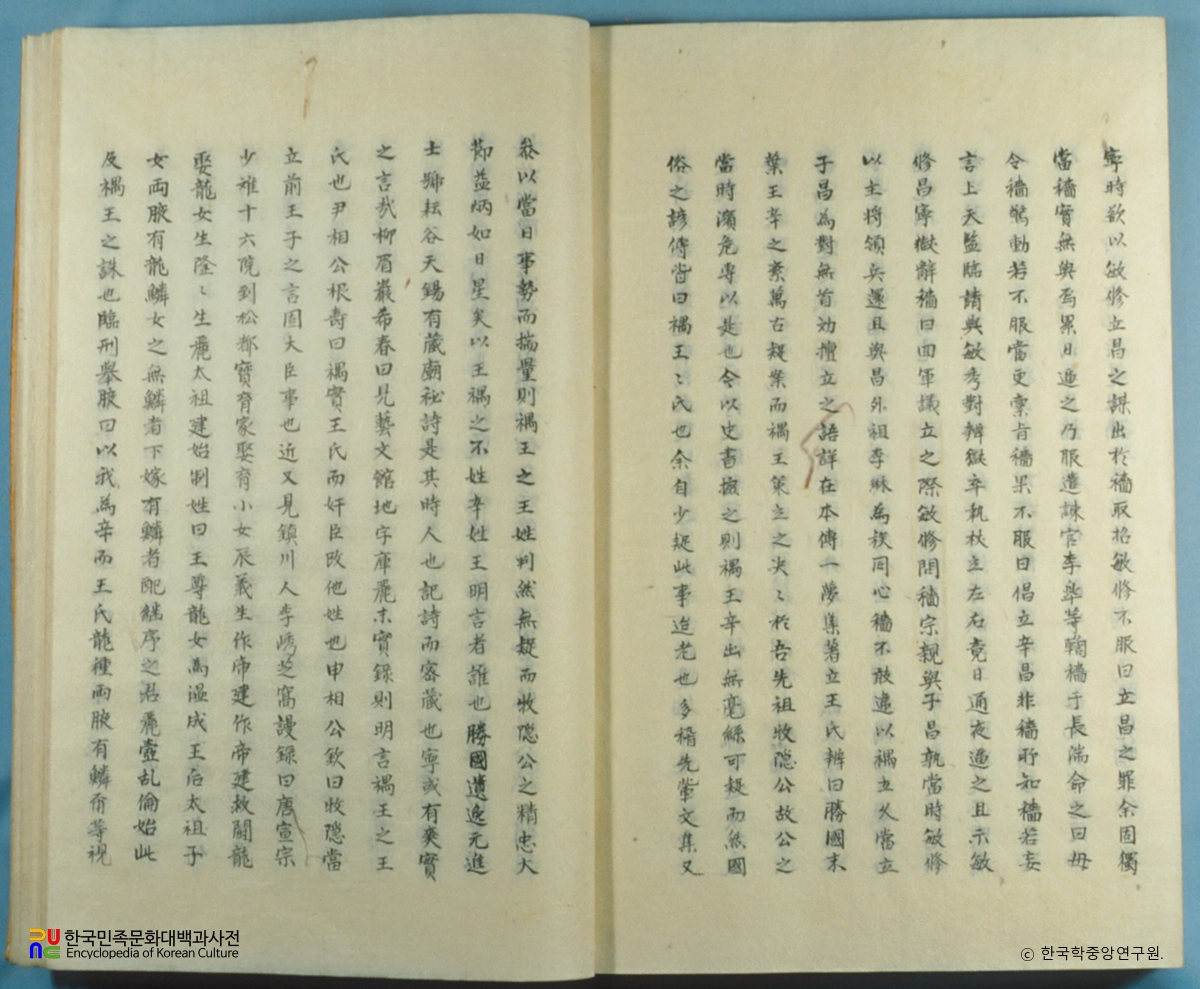 寧時欲以敏修立昌之謀出於穡取招敏修不服曰立昌之罪余固獨
當穡實無與焉累日逼之乃服遣諫官李擧等鞫穡于長湍命之曰毋
令穡驚動若不服當更稟旨穡果不服曰倡立辛昌非穡所知穡若妄
言上天監臨請與敏秀對辨獄卒執杖立左右竟日通夜逼之且示敏
修昌寧獄辭穡曰回軍議立之際敏修問穡宗親與子昌孰當時敏修
以主將領兵還且與昌外祖李琳為族同心穡不敢違以禑立久當立
子昌為對無首効擅立之語詳在本傳一夢集著立王氏辨曰勝國末
葉王辛之案萬古疑案而禑王策立之決〻於吾先祖牧隱公故公之
當時濱危專以是也今以史書撿之則禑王辛出無毫絲可疑而然國
俗之諺傳皆曰禑王〻氏也余自少疑此事迨老也多稽先輩文集又
叅以當日事勢而揣量則禑王之王姓判然無疑而牧隱公之精忠大
節益炳如日星矣以王禑之不姓辛姓王明言者誰也勝國遺逸元進
士號耘谷天錫有藏廟祉詩是其時人也記詩而審藏也寧或有爽實
之言哉柳眉巖希春曰見藝文館地字庫麗末實錄則明言禑王之王
氏也尹相公根壽曰禑實王氏而奸臣改他姓也申相公欽曰牧隱當
立前王子之言固大臣事也近又見鎮川人李 芝窩謾録曰唐宣宗
少難十六院到松都寶育家娶育小女辰義生作帝建作帝建救闘龍
娶龍女生隆〻生麗太祖建始制姓曰王尊龍女為溫成王后太祖子
女兩腋有龍鱗女之無鱗者下嫁有鱗者配継序之君麗壼乱倫始此
及禑王之誅也臨刑擧腋曰以我為辛而王氏龍種兩腋有鱗爾等視
한국민족문화대백과사전
Encyclopedia of Korean Culture
ⓒ 한국학중앙연구원.